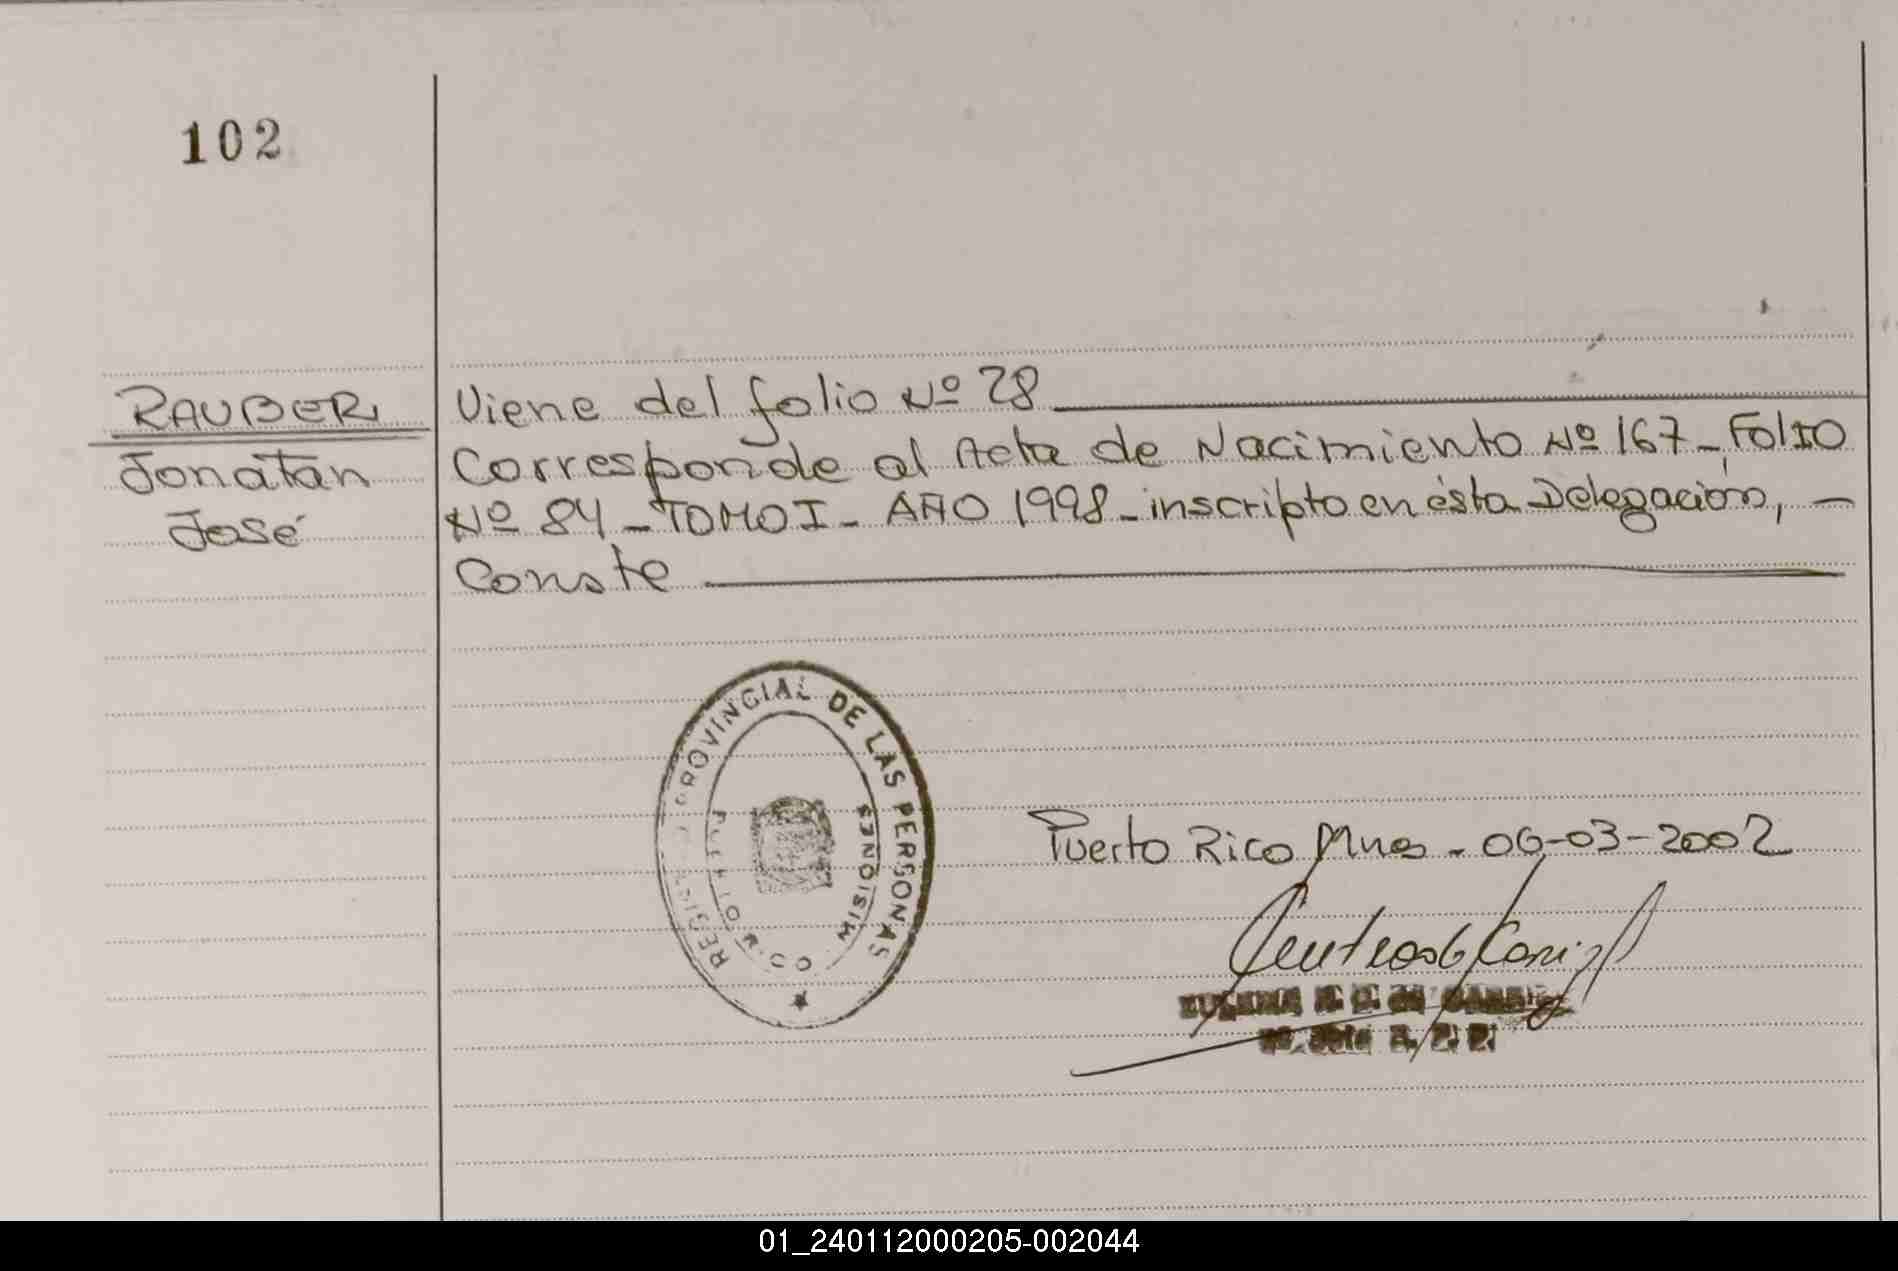 102
RAUBER
Jonatan
José
Viene del folio Nº 28
Corresponde al Acta de Nacimiento Nº 167_ FOLIO
Nº 84 _ TOMO I _ AÑO 1998 _ inscripto en ésta Delegación, —
Conste
REGISTRO PROVINCIAL DE LAS PERSONAS
MISIONES
Puerto Rico Mnes - 06-03-2002
01_240112000205-002044